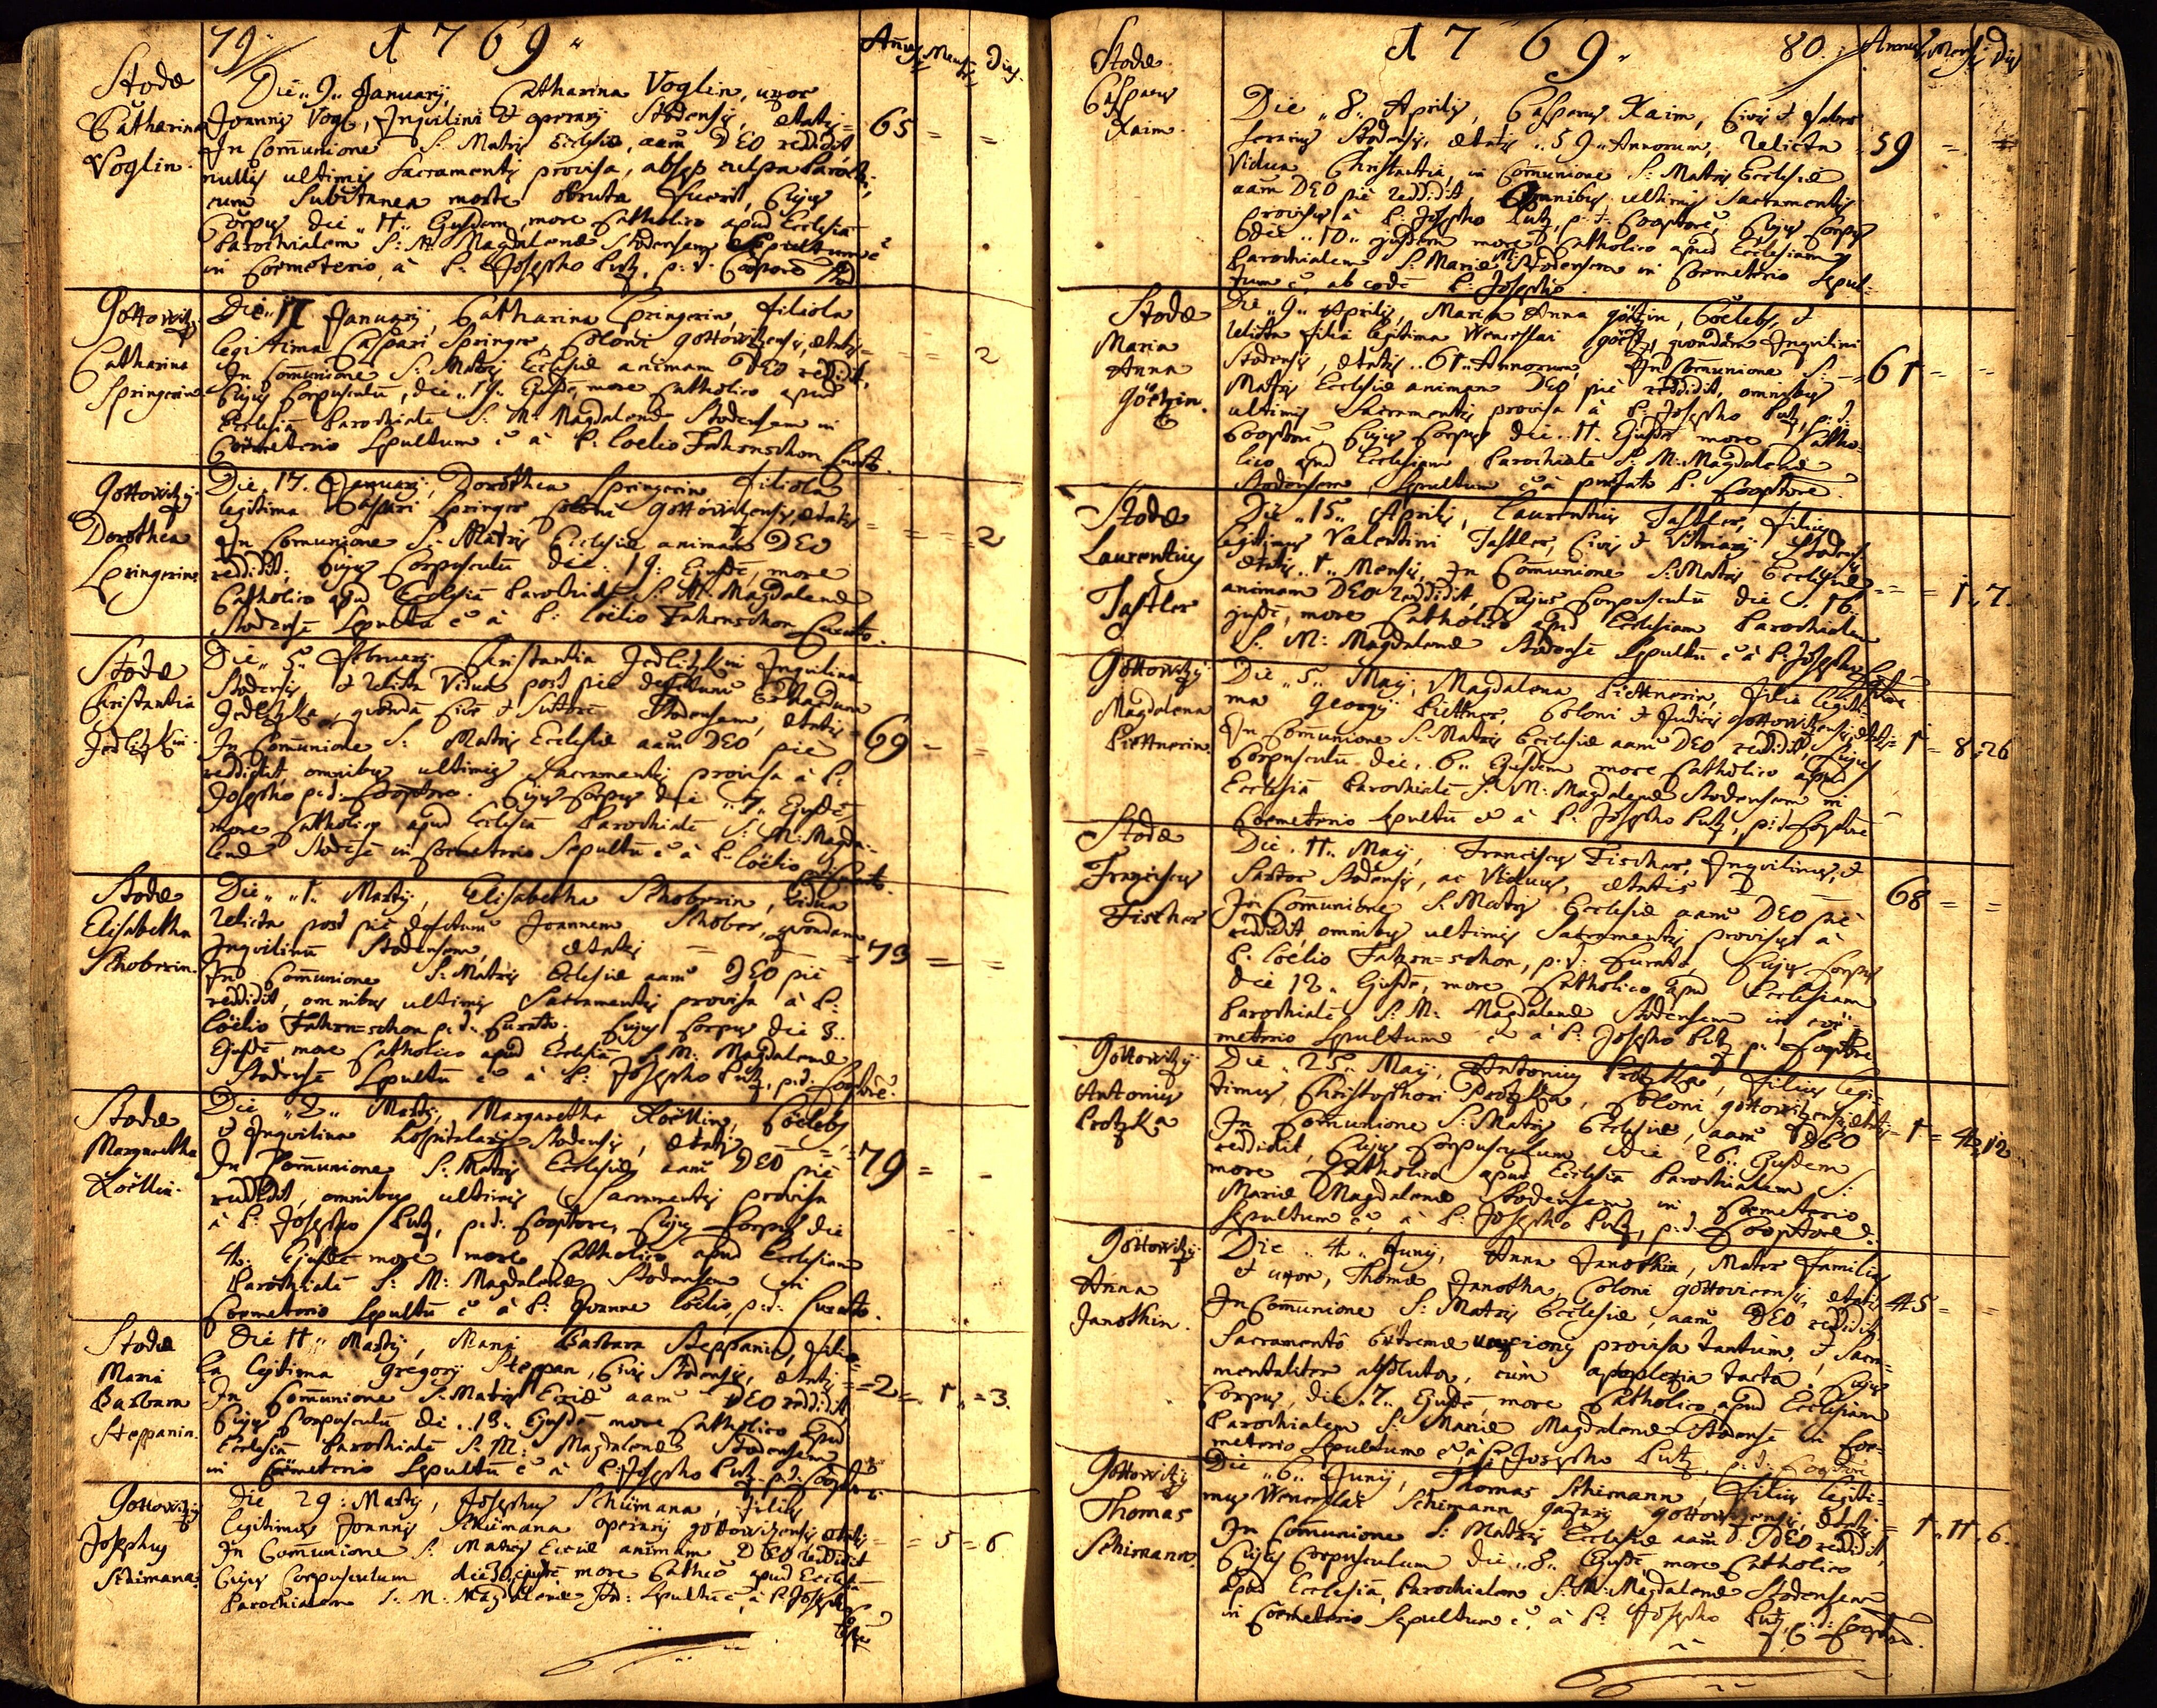 79
1769
Annus Mens: Dies
Stodæ
Catharina
Voglin.
Die 9 January, Catharina Voglin, uxor
Joannis Vogl, Inquilini et operarij Stodensis, ætatis = 65 = =
In Communione S: Matris Ecclesiæ, aam DEO reddidit,
nullis ultimis Sacramentis provisa, absq culpa Parochi,
cum Subitanea morte obruta fuerit, Cujus
Corpus die 11 Ejusdem, more Catholico apud Ecclesiã
Parochialem S: M Magdalenæ Stodensem Sepultum ẽ
in Coemeterio, à P: Josepho Putz, p: t: Cooptore
Gottowitzij
Catharina
Springerin
Die 17 January, Catharina Springerin, filiola
legitima Caspari Springer, Coloni Gottowitzensis, ætatis = = = 2
In Communione S: Matris Ecclesiæ animam DEO reddidit,
Cujus Corpusculũ, die 19 Ejusdẽ, more Catholico apud
Ecclesiã Parochialẽ S: M: Magdalenæ Stodensem in
Coemeterio Sepultum ẽ à P: Coelio Fahrnschon Curato.
Gottowitzij
Dorothea
Springerin
Die 17. January, Dorothea Springerin filiola
legitima Caspari Springer Coloni Gottowitzensis, ætatis = = = 2
In Comunione S: Matris Ecclesiæ animam DEO
reddidit, Cujus Corpusculũ die 19: Ejusdẽ, more
Catholico apud Ecclesiã Parochialẽ S: M: Magdalenæ
Stodensẽ Sepultũ ẽ à P: Coelio Fahrnschon Curato.
Stodæ
Christantia
Jedlitzkin
Die 5. February Christantia Jedlitzkin Inquilina
Stodensis, et relicta Vidua post pie defunctum
Jedlitzka, quondã Cive et Sutore Stodensem, ætatis = 69 = =
In Communione S: Matris Ecclesiæ aam DEO pie
reddidit, omnibus ultimis Sacramentis provisa à P:
Josepho p: t: Cooptore. Cujus Corpus die 7. Ejusdẽ,
more Catholico apud Ecclesiã Parochialẽ S: M: Magda-
lenæ Stodensẽ in Coemeterio Sepultũ ẽ à P: Coelio Curato.
Stodæ
Elisabetha
Schoberin.
Die 1. Martij, Elisabetha Schoberin, Vidua
relicta post pie defunctum Joannem Schober, quondam
Inquilinũ Stodensem, ætatis = = 73 = =
In Communione S: Matris Ecclesiæ aam DEO pie
reddidit, omnibus ultimis Sacramentis provisa à P:
Coelio Fahrn=schon p: t: Curato. Cujus Corpus die 3..
Ejusdẽ, more Catholico apud Ecclesiã S: M: Magdalenæ
Stodensẽ Sepultũ ẽ à P: Josepho Putz, p: t: Cooptorẽ.
Stodæ
Margaretha
Köllin.
Die 2 Martij, Margaretha Köllin, Coelebs
et Inquilina Hospitalis Stodensis, ætatis = 79 = =
In Communione S: Matris Ecclesiæ aam DEO pie
reddidit, omnibus ultimis Sacramentis provisa
à P: Josepho Putz, p: t: Cooptore, Cujus Corpus die
4. Ejusdẽ more more Catholico apud Ecclesiam
Parochialẽ S: M: Magdalenæ Stodensem in
Coemeterio Sepultũ ẽ à P: Joanne Coelio, p: t: Curato.
Stodæ
Maria
Barbara
Steppanin.
Die 11 Martij, Maria Barbara Steppanin, filio-
la legitima Gregorij Steppan, Civis Stodensis, ætatis = 2 = 1 = 3.
In Communione S: Matris Ecciæ aam DEO reddidit,
Cujus Corpusculũ die 13. Ejusdẽ more Catholico apud
Ecclesiã Parochialẽ S: M: Magdalenæ Stodensem
in Coemeterio Sepultũ ẽ à P: Josepho Putz p: t: Cooptore
Gottowitzij
Josephus
Schimana.
Die 29: Martij, Josephus Schimana, filius
legitimus Joannis Schimana operarij Gottowitzensis ætatis = = 5 = 6
In Communione S: Matris Ecciæ animam DEO reddidit
Cujus Corpusculum die ejusdẽ more Cathco apud Ecclesiã
Parochialem S: M: Magdalenæ Stod: Sepultũ ẽ, à P. Josepho
1769
80
Annus Mens: Dies
Stodæ
Casparus
Kaim.
Die 8. Aprilis, Casparus Kaim, Civis et faber
ferrarius Stodensis, ætatis 59 Annorum, relicta = 59 = =
Vidua Christantia, in Communione S: Matris Ecclesiæ
aam DEO pie reddidit, Omnibus ultimis Sacramentis
provisus à P: Josepho Putz, p: t: Cooptore, Cujus Corpus
die 10 ejusdem more Catholico apud Ecclesiam
Parochialem S: Mariæ M: Stodensem in Coemeterio Sepul-
tum ẽ, ab eodẽ P: Josepho.
Stodæ
Maria
Anna
Götzin.
Die 9 Aprilis, Maria Anna Götzin, Coelebs, et
relicta filia legitima Wenceslai Götz, quondam Inquilini
Stodensis, ætatis 61 Annorum, In Communione S: = 61 = =
Matris Ecclesiæ animam DEO pie reddidit, omnibus
ultimis Sacramentis provisa à P: Josepho Putz, p: t:
Cooptore Cujus Corpus die 11. Ejusdẽ more Catho-
lico apud Ecclesiam Parochialẽ S: M: Magdalenæ
Stodensem Sepultum ẽ à præfato P. Cooptore.
Stodæ
Laurentius
Tastler
Die 15 Aprilis, Laurentius Tastler, filius
legitimus Valentini Tastler, Civis et Vitriarij Stodensis
ætatis 1 Mensis, In Communione S: Matris Ecclesiæ = = 1. 7.
animam DEO reddidit, Cujus Corpusculũ die 16
ejusdẽ, more Catholico apud Ecclesiam Parochialem
S: M: Magdalenæ Stodensẽ Sepultũ ẽ à P. Josepho
Gottowitzij
Magdalena
Plettnerin.
Die 5 May, Magdalena Plettnerin, filia legiti-
ma Georgij Plettner, Coloni et Judicis Gottowitzensis, ætatis = 1 = 8. 26
In Communione S: Matris Ecclesiæ aam DEO reddidit, Cujus
Corpusculũ die 6. Ejusdem more Catholico apud
Ecclesiã Parochialẽ S: M: Magdalenæ Stodensem in
Coemeterio Sepultũ ẽ à P: Josepho Putz, p: t: Cooptore
Stodæ
Franciscus
Fischer
Die 11. May, Franciscus Fischer, Inquilinus, et
Sartor Stodensis, ac Viduus, ætatis = 68 = =
In Communione S: Matris Ecclesiæ aam DEO pie
reddidit omnibus ultimis Sacramentis provisus à
P. Coelio Fahrn=schon, p: t: Curato, Cujus Corpus
die 12. Ejusdẽ, more Catholico apud Ecclesiam
Parochialẽ S: M: Magdalenæ Stodensem in coe-
meterio Sepultum ẽ à P: Josepho Putz p: t: Cooptore
Gottowitzij
Antonius
Protzka
Die 25. May, Antonius Protzka, filius legi-
timus, Christophori Protzka, Coloni Gottowitzensis ætatis = 1 = 4. 12
In Communione S: Matris Ecclesiæ, aam DEO
reddidit, Cujus Corpusculum die 26. Ejusdem
more Catholico apud Ecclesiã Parochialem S:
Mariæ Magdalenæ Stodensem in Coemeterio
Sepultum ẽ à P: Josepho Putz, p: t: Cooptore
Gottowitzij
Anna
Janothin.
Die 4. Junij, Anna Janothin, Mater familias
et uxor, Thomæ Janotha, Coloni Gottovicensis, ætatis 45 = =
In Communione S: Matris Ecclesiæ, aam DEO reddidit,
Sacramento Extremæ unctionis provisa tantum, et Sacra-
mentaliter absoluta, cum apoplexia tacta, Cujus
Corpus, die 7. Ejusdẽ, more Catholico apud Ecclesiam
Parochialem S: Mariæ Magdalenæ Stodensẽ in Coe-
meterio Sepultum ẽ, à P: Josepho Putz, p: t: Cooptore
Gottowitzij
Thomas
Schimann.
Die 6. Junij, Thomas Schimann, filius legiti-
mus Wenceslai Schimann Gottowitzensis, ætatis = 1. 11. 6.
In Communione S: Matris Ecclesiæ aam DEO reddidit,
Cujus Corpusculum die 8. Ejusdẽ, more Catholico
apud Ecclesiã, Parochialem S: M: Magdalenæ Stodensem
in Coemeterio Sepultum ẽ, à P: Josepho Putz, p: t: Cooptore.